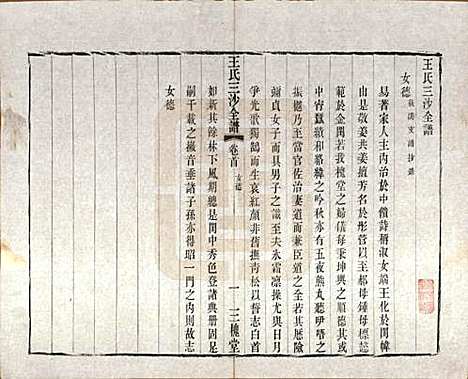 王氏三沙全譜
女德
易著家人主內治於中饋詩稱淑女端王化於閨幃
由是敬姜擅芳名於彤管以至郝母鍾母標懿
範於金閨若我槐堂之婦信每秉坤興之順德其或
中宵蠶績和絡緯以吟秋亦有五夜熊丸聽咿唔之
振彪乃至當官佐治妻道而兼臣道之全若其歷險
蹈貞女子而具男子之識至夫氷霜凜操尤與日月
爭光歌獨鶴而生哀紅顏非舊撫青松以誓志白首
如新其餘林下風期總是閨中秀色登諸典冊固是
嗣千載之徽音垂諸子孫亦得昭一門之內則故志
女德
王氏三沙全譜
卷首
女德
一
三槐堂